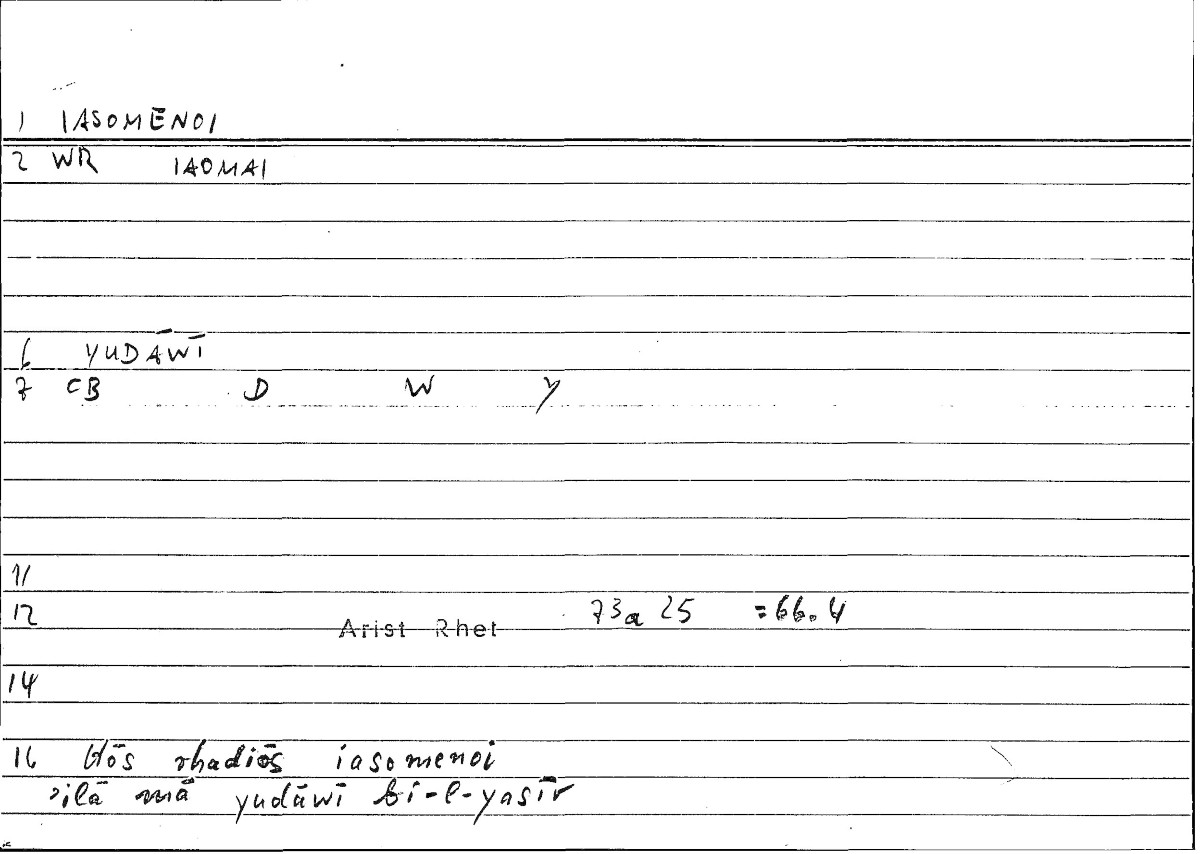 1 IASOMENOI
2 WR IAOMAI
6 YUDĀWĪ
7 CB D W Y
11
12 Arist Rhet 73a 25 =66.4
14
16 Hōs rhadiōs iasomenoi
ʾilā mā yudāwī bi-l-yasīr